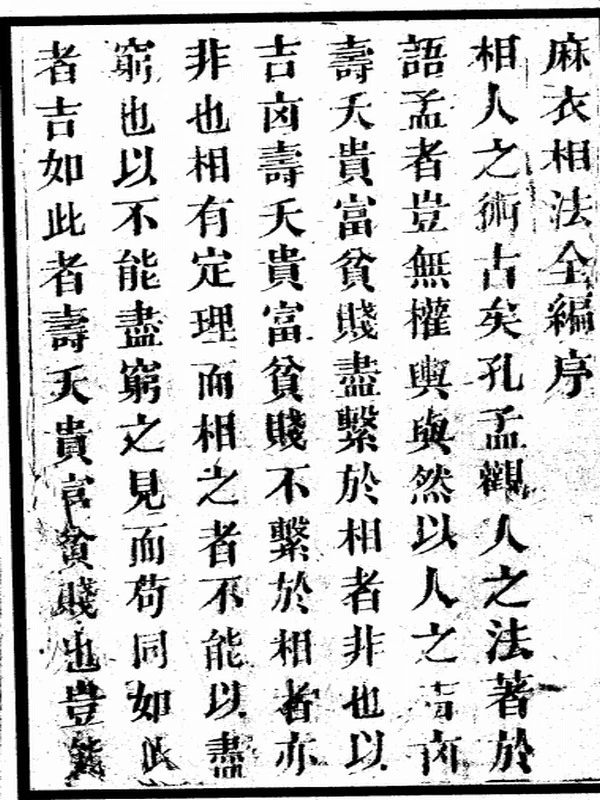 麻衣相法全編序
相人之術古矣孔孟觀人之法著於
語孟者豈無權輿與然以人之吉卤
壽夭貴富貧賤盡繫於相者非也以
吉卤壽夭貴富貧賤不繫於相者亦
非也相有定理而相之者不能以盡
窮也以不能盡窮之見而苟同如此
者吉如此者壽夭貴富貧賤也豈